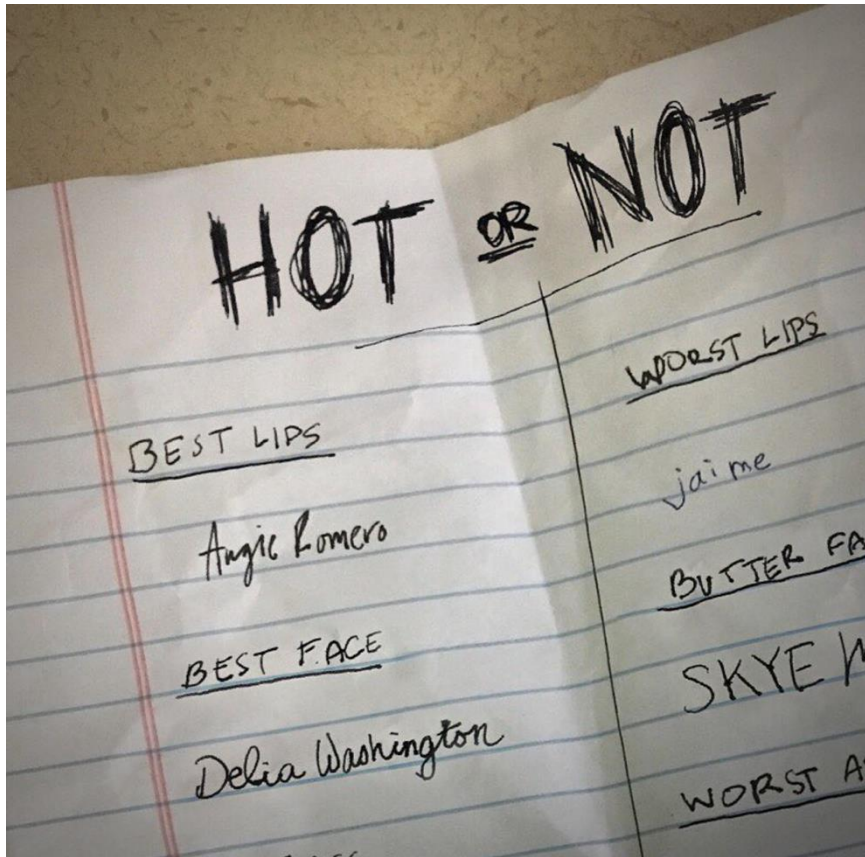 HOT OR NOT
BEST LIPS
Angie Romero
BEST FACE
Delia Washington
WORST LIPS
jaime
BUTTER FA
SKYE
WORST A